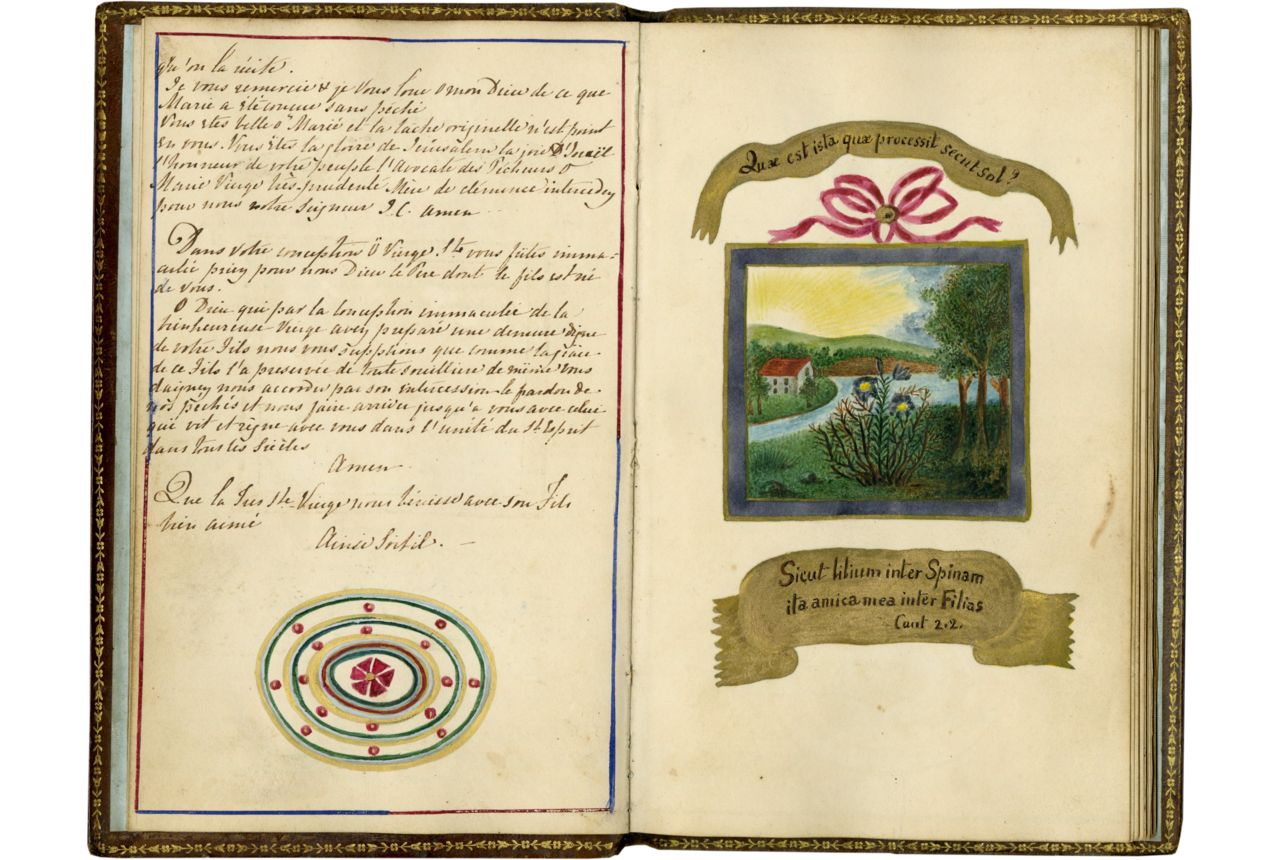 qu'on la récite.
Je vous remercie & je vous loue o mon Dieu de ce que
Marie a été conçue sans péché
Vous êtes belle o Marie et la tache originelle n'est point
en vous. Vous êtes la gloire de Jerusalem la joie D'Israël
l'honneur de votre peuple l'Avocate des Pécheurs O
Marie Vierge très prudente Mère de clemence intercedez
pour nous notre Seigneur J.C. Amen
Dans votre conception ô Vierge Ste vous fûtes imma-
culée priez pour nous Dieu le Père dont le fils est né
de vous.
O Dieu qui par la Conception immaculée de la
bienheureuse Vierge avez preparé une demeure digne
de votre Fils nous vous supplions que comme la grace
de ce Fils l'a preservée de toute souillure de même vous
daigniez nous accorder par son intercession le pardon de
nos péchés et nous faire arriver jusqu'a vous avec celui
qui vit et règne avec vous dans l'unité du St Esprit
dans tous les siècles
Amen
Que la Ste Vierge nous benisse avec son Fils
bien aimé
Ainsi Soit il. -
Quæ est ista quæ processit secut sol?
Sicut lilium inter Spinam
ita amica mea inter Filias
Cant 2.2.